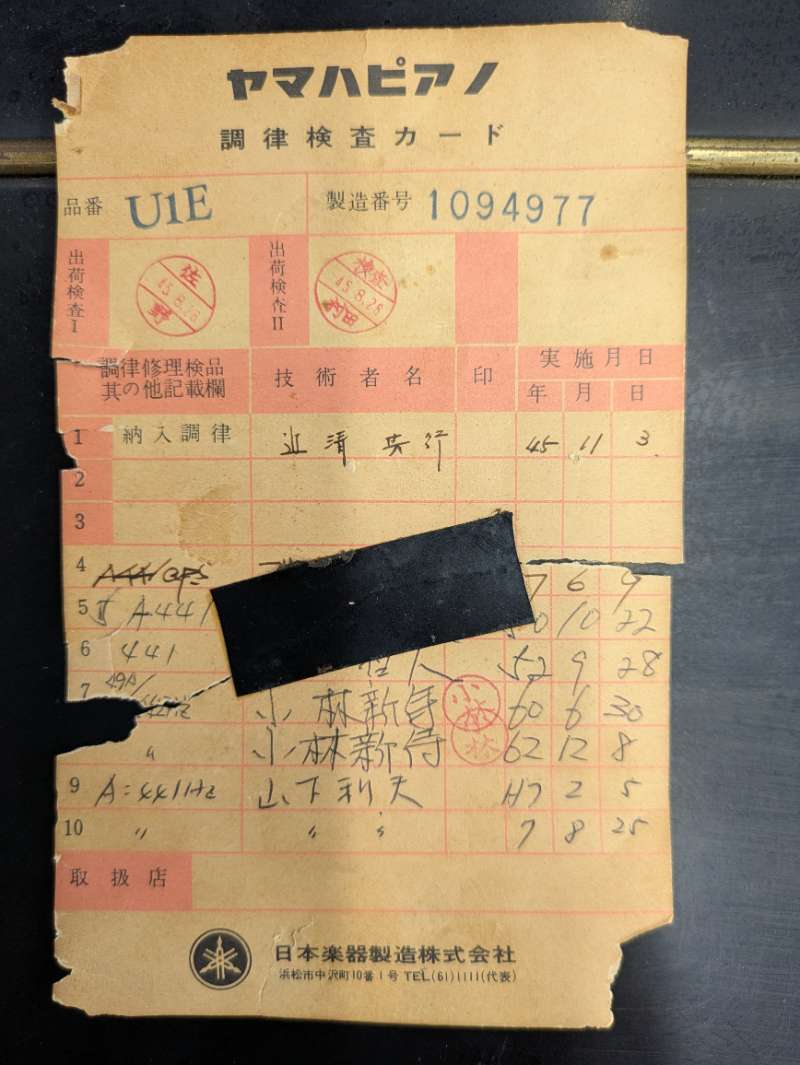 ヤマハピアノ
調律検査カード
品番 U1E 製造番号 1094977
出荷検査I 佐野 45.8.28 出荷検査II 検査 45.8.28
調律修理検品其の他記載欄 技術者名 印 実施月日
年 月 日
1 納入調律 45 11 3
2
3
4 7 6 9
5 A441 50 10 22
6 441 52 9 28
7 小林新侍 小林 60 6 30
〃 小林新侍 小林 62 12 8
9 A=441Hz 山下利夫 H7 2 5
10 〃 〃 〃 7 8 25
取扱店
日本楽器製造株式会社
浜松市中沢町10番1号 TEL(61)1111(代表)